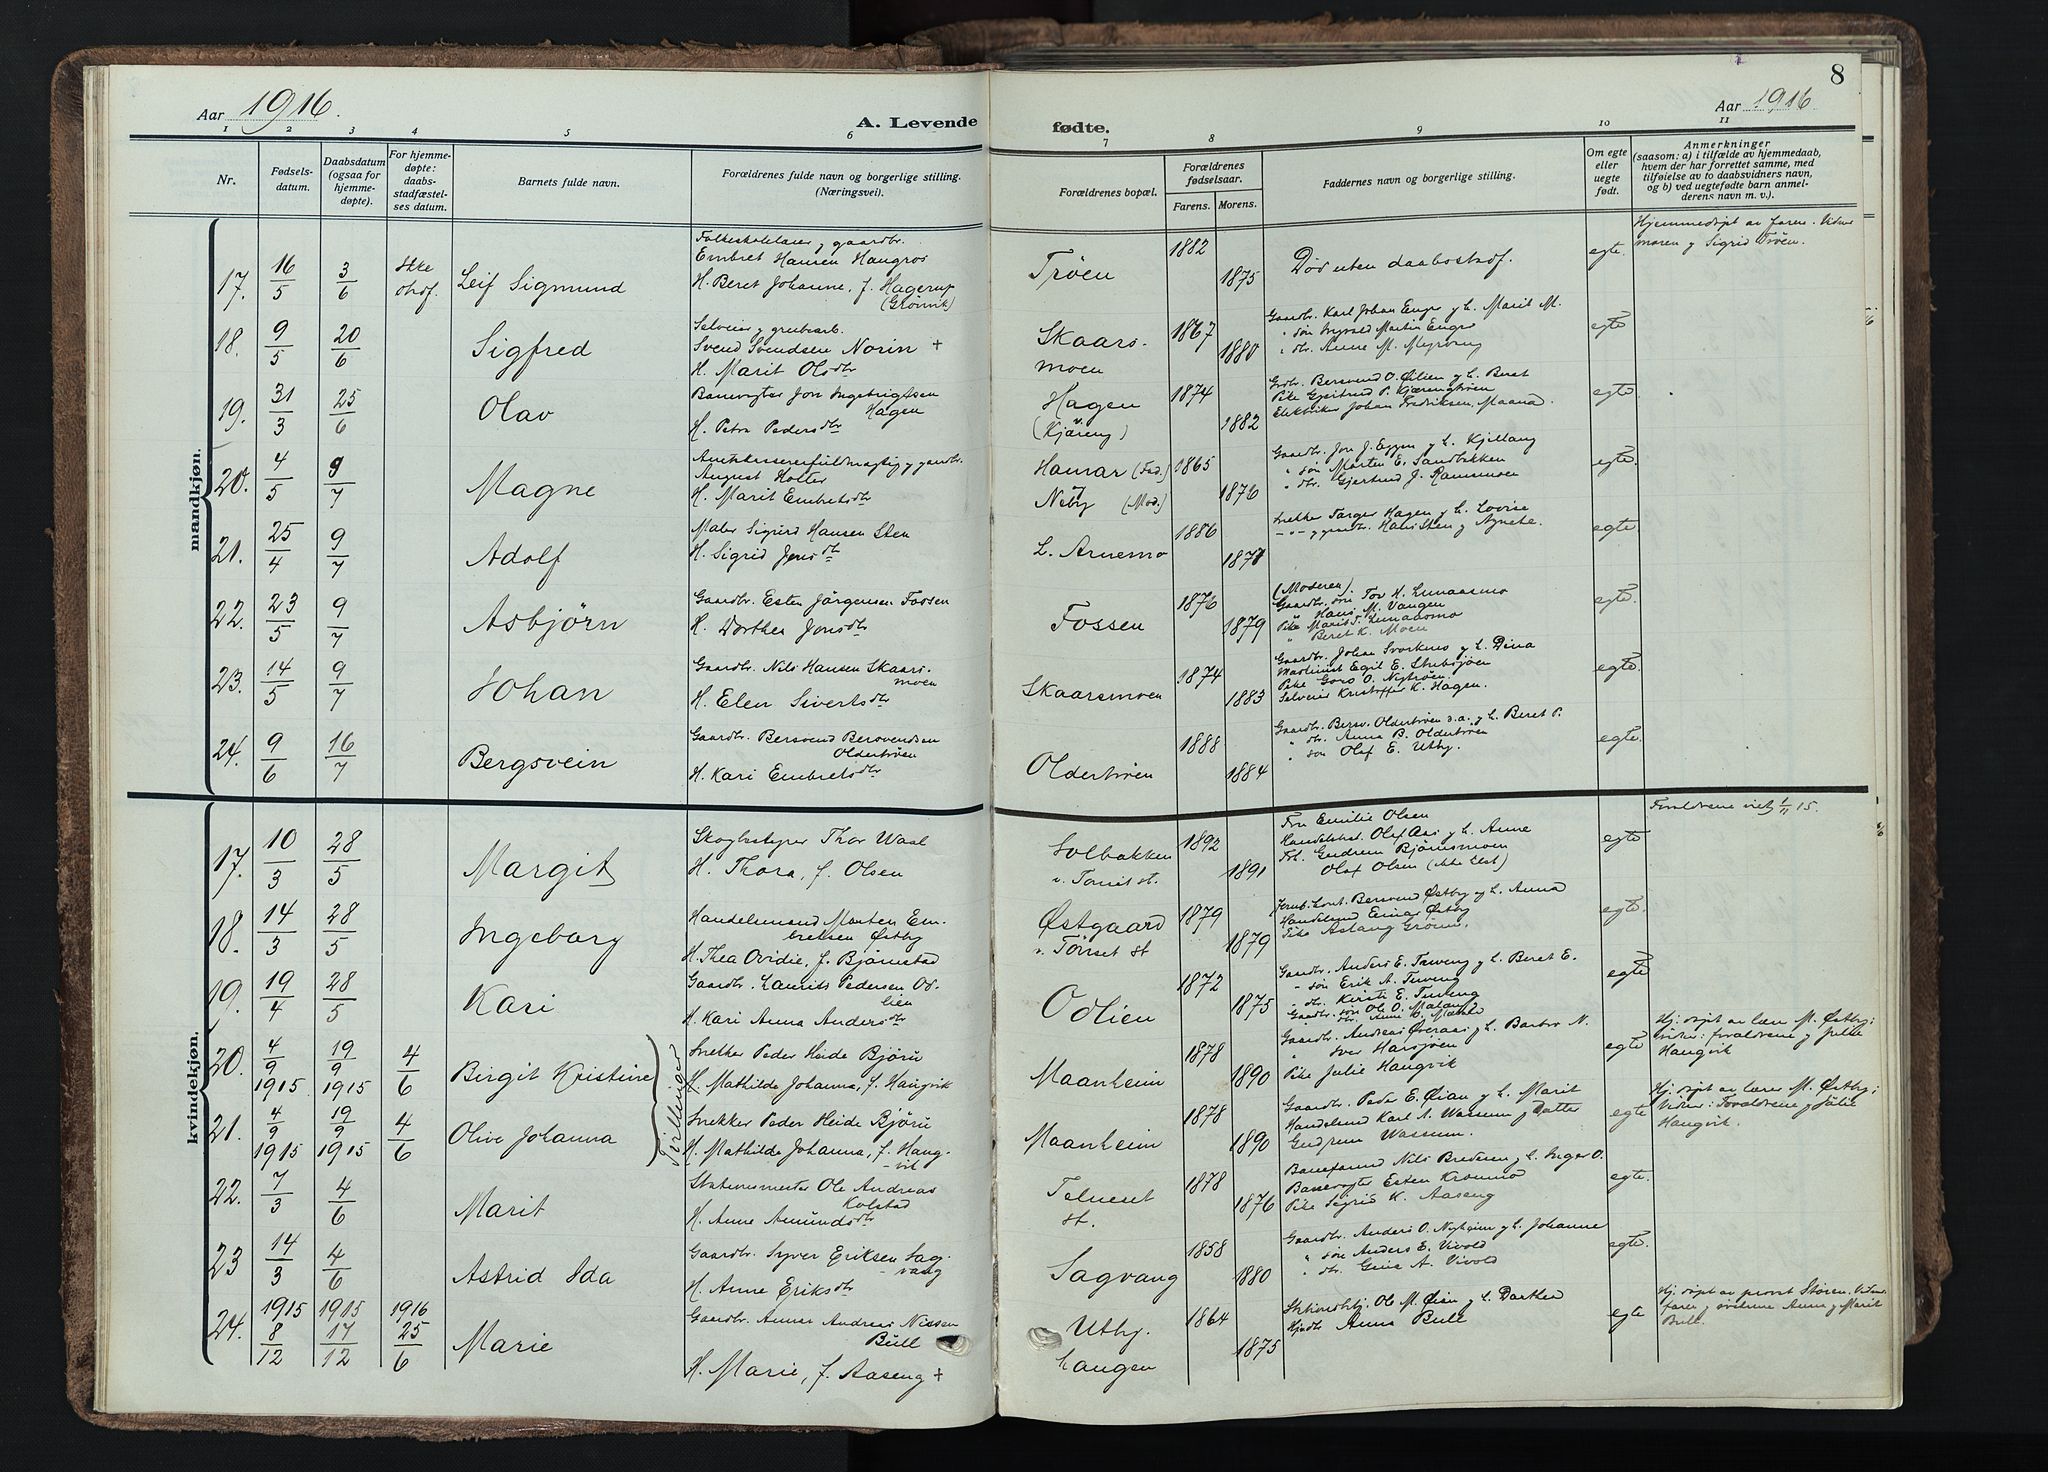 8
Aar 1916.
A. Levende
fødte.
Aar 1916
1 2 3 4 5 6
7 8 9 10 11
Nr.
Fødsels-
datum.
Daabsdatum
(ogsaa for
hjemme-
døpte).
For hjemme-
døpte:
daabs-
stadfæstel-
ses datum.
Barnets fulde navn.
Forældrenes fulde navn og borgerlige stilling.
(Næringsvei).
Forældrenes bopæl.
Forældrenes
fødselsaar.
Farens. Morens.
Faddernes navn og borgerlige stilling.
Om egte
eller
uegte
født.
Anmerkninger
(saasom: a) i tilfælde av hjemmedaab,
hvem der har forrettet samme, med
tilføielse av to daabsvidners navn,
og b) ved uegtefødte barn anmel-
derens navn m. v.).
mandkjøn.
17. 16/5 3/6 Ikke
Leif Sigmund
Embret Hansen Haugros
H. Beret Johanne, f. Hagerup
(Grönvik)
Tröen 1882 1875
Död uten daabsstadf.
egte
Hjemmedöpt av faren. Vidner
moren og Sigrid Tröen.
18. 9/5 20/6 Sigfred
Selveier og grubearb.
Svend Svendsen Norin +
H. Marit Olsdtr
Skaars-
moen 1867 1880
Gaardbr. Karl Johan Enger og h. Marit M.
" dtr. Anne M. Myrvang
egte
19. 31/3 25/6 Olav
Banevogter Jon Ingebrigtsen
Hagen
H. Petra Pedersdtr
Hagen
(v. Kjæreng) 1874 1882
Pike Gjertrud P. Kjærengtröen
Elektriker Johan Fredriksen, Maana.
egte
20. 4/5 9/7 Magne
August Holter
H. Marit Embretsdtr
Hamar (Fad.)
og
Neby (Mod.) 1865 1876
Gaardbr. Jon J. Eggen og h. Kjellaug
" søn Morten E. Sandbakken
" dtr. Gjertrud J. Ramsmoen
egte
21. 25/4 9/7 Adolf
Maler Sigurd Hansen Sten
H. Sigrid Jonsdtr
L. Arnemo 1886 1871
Snekker Torger Hagen og h. Lovise
egte
22. 23/5 9/7 Asbjörn
Gaardbr. Esten Jörgensen Fossen
H. Dorthea Jonsdtr
Fossen 1876 1879
(Moderen)
Hans M. Vangen
" Beret K. Moen
egte
23. 14/5 9/7 Johan
Gaardbr. Nils Hansen Skaars-
moen
H. Elen Sivertsdtr
Skaarsmoen 1874 1883
Maskinist Egil E. Stubsjöen
Pike Goro O. Nytröen.
Selveier Kristoffer K. Hagen.
egte
24. 9/6 16/7 Bergsvein
Gaardbr. Bersvend Bersvendsen
Oldertröen
H. Kari Embretsdtr
Oldertröen 1888 1884
Gaardbr. Bersv. Oldertröen s.a. og h. Beret P.
" dtr. Anna B. Oldertröen
" søn Olaf E. Utby.
egte
kvindekjøn.
17. 10/3 28/5 Margit
Skogbestyrer Thor Waal
H. Thora, f. Olsen
Solbakken
v. Tönset st. 1892 1891
Fru Emilie Olsen
Handelsbet. Olaf Aas og h. Anne
Frk. Gudrun Björnsmoen
Olaf Olsen (ikke tilst)
egte
Forældrene viet 1/11 15.
18. 14/3 28/5 Ingeborg
Handelsmand Morten Em-
bretsen Østby
H. Thea Ovidie, f. Björnstad
Østgaard
v. Tönset st 1879 1879
Jernb.kont. Bersvend Østby og h. Anna
Handelsmd Einar Østby
Pike Aslaug Grönn.
egte.
19. 19/4 28/5 Kari
Gaardbr. Laurits Pedersen Od-
lien
H. Kari Anna Andersdtr
Odlien 1872 1875
Gaardbr. Anders E. Tuveng og h. Beret E.
" søn Erik A. Tuveng
" dtr. Kirsti E. Tuveng
egte
20. 4/9 1915 19/9 1915 4/6 Birgit Kristine
Tvillinger
Snekker Peder Heide Björu
H. Mathilde Johanna, f. Haugvik
Maanheim 1878 1890
Gaardbr. Andreas Øveraas og h. Barbro N.
" Iver Harsjöen
Pike Julie Haugvik
egte
Hj. döpt av lærer M. Østby;
vidner: forældrene og Julie
Haugvik
21. 4/9 1915 19/9 1915 4/6 Olive Johanna
Snekker Peder Heide Björu
H. Mathilde Johanna, f. Haug-
vik
Maanheim 1878 1890
Gaardbr. Peder E. Øian og h. Marit
Handelsmd Karl A. Wassum og datter
Gudrun Wassum.
egte
Hj. döpt av lærer M. Østby;
Vidner: Forældrene og Julie
Haugvik.
22. 7/3 4/6 Marit
Stationsmester Ole Andreas
Kolstad
H. Anne Amundsdtr
Telneset
st. 1878 1876
Baneformd Nils Bredesen og h. Inger O.
Banevogter Esten Kroemo
Pike Sigrid K. Aaseng
egte.
23 14/3 4/6 Astrid Ida
Gaardbr. Syver Eriksen Sag-
vang
H. Anne Eriksdtr
Sagvang 1858 1880
Gaardbr. Anders O. Nyheim og h. Johanne
" søn Anders E. Vivold
" dtr. Guri A. Vivold
egte.
24. 1915 8/12 1915 17/12 1916 25/6 Marie
Gaardbr. Anmar Andreas Nissen
Bull
H. Marie, f. Aaseng +
Utby.
Haugen 1864 1875
Ole M. Øian og h. Dorthea
Anna Bull
egte
Hj. döpt av provst Stören. Vidner
faren og søstrene Anna og Marit
Bull.